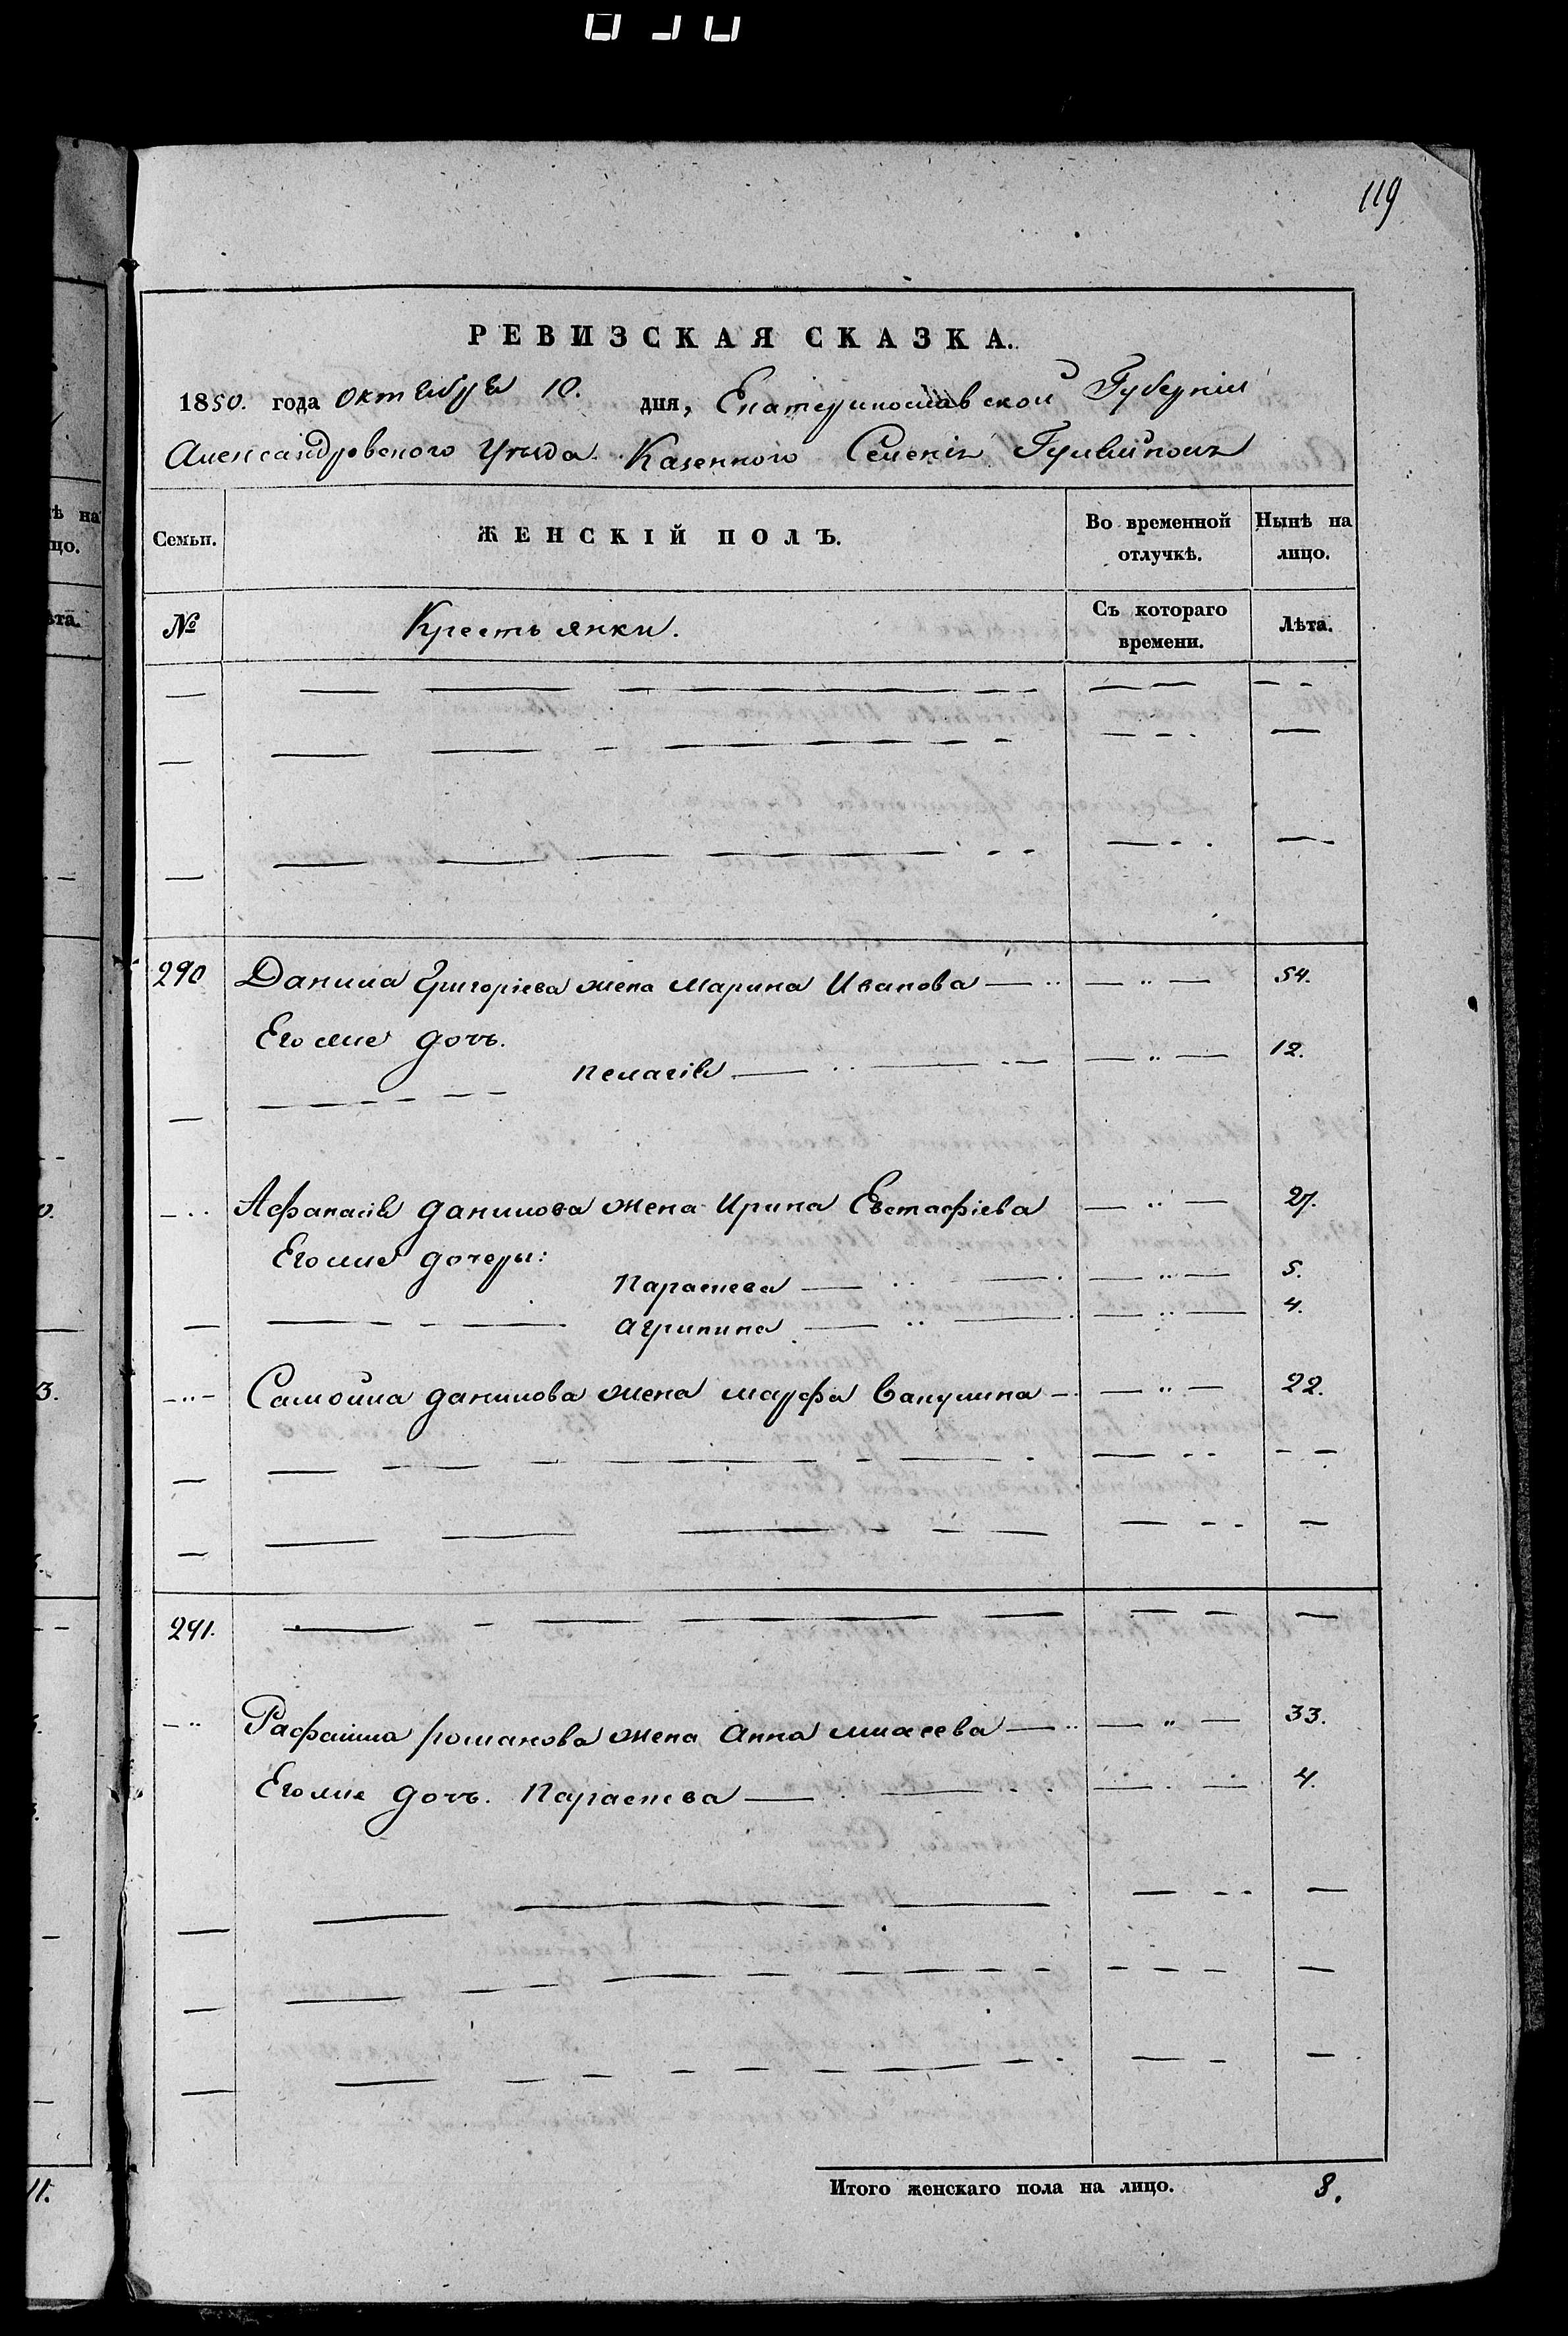 119
РЕВИЗСКАЯ СКАЗКА.
1850. года октября 10. дня, Екатеринославской Губерніи
Александровского Уезда Казенного Селенія Гуляйполя
Семьи. ЖЕНСКІЙ ПОЛЪ. Во временной отлучкѣ. Нынѣ на лицо.
№ Крестьянки. Съ котораго времени. Лѣта.
290 Данила Григоріева жена Марина Иванова 54.
Его же дочь.
Пелагія 12.
Афанасія Данилова жена Ирина Евстафіева 27.
Его же дочери:
Параскева 5.
Агрипина 4.
Самойла Данилова жена Марфа Вакулина 22.
291.
Рафаила Романова жена Анна 33.
Его же дочь. Параскева 4.
Итого женскаго пола на лицо. 8.
ѣ на
цо.
ѣта.
0.
3.
11.